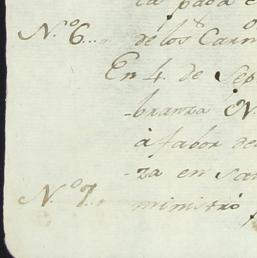 N.º 6... de los Carm
En 4. de Sep
-branza N.
à fabor de
-za en Sa
N.º 7... ministró